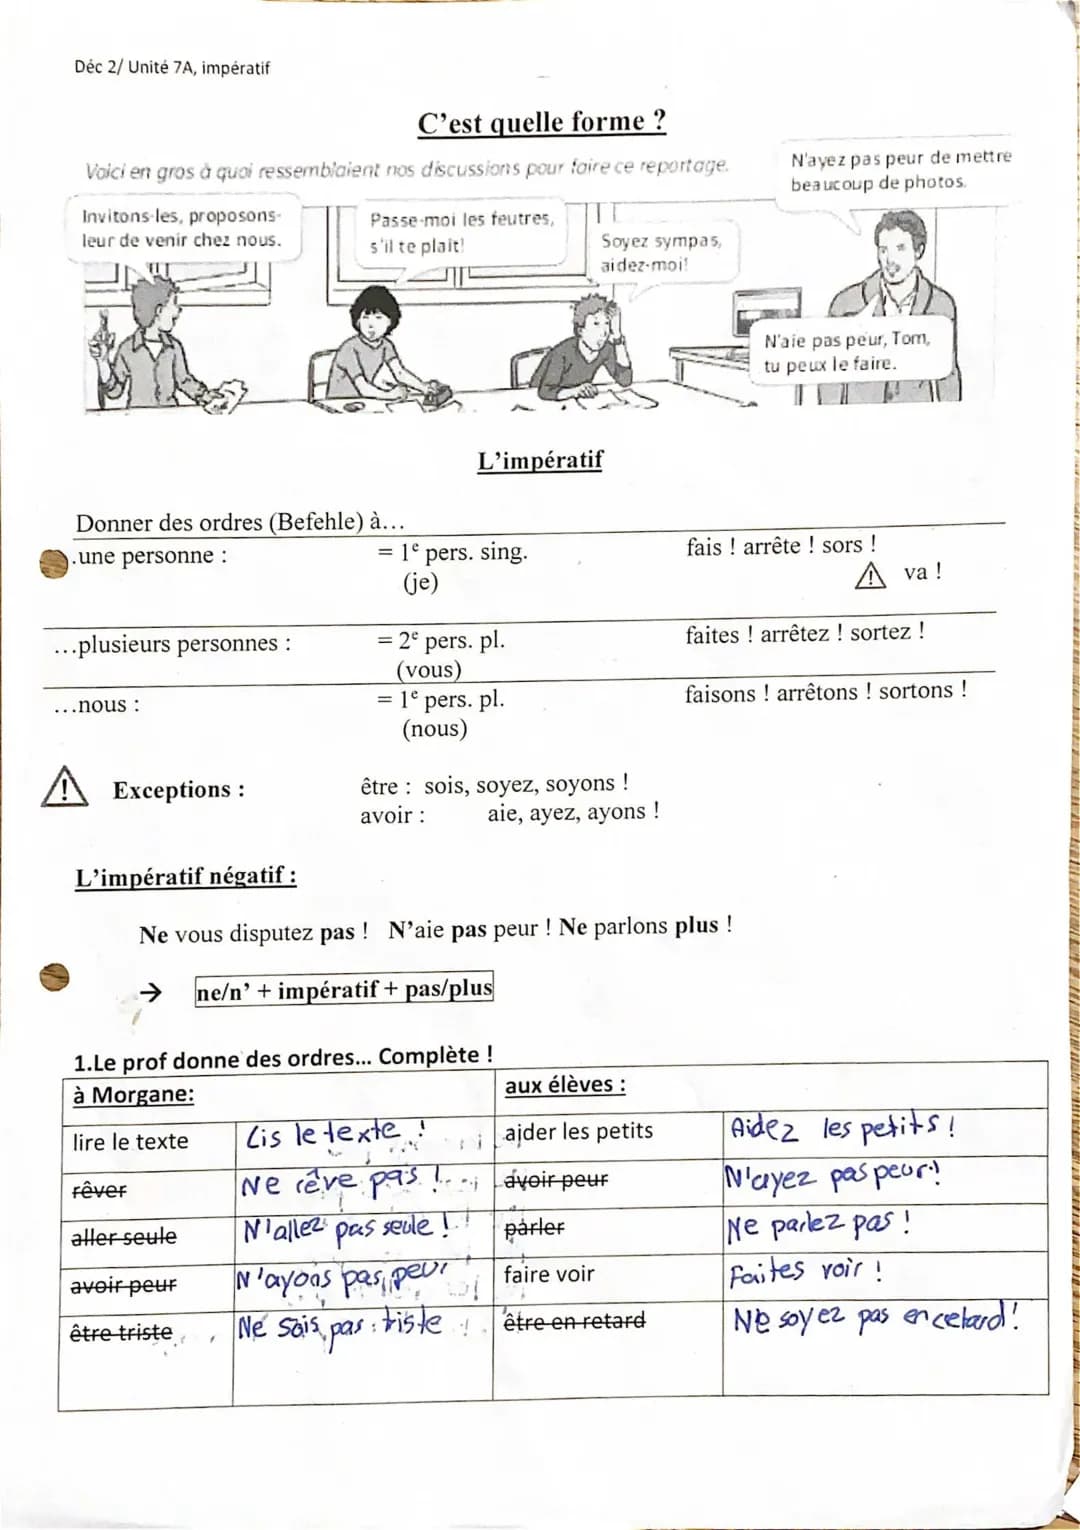 Déc 2/ Unité 7A, impératif
C'est quelle forme ?
Voici en gros à quoi ressemblaient nos discussions pour faire ce reportage.
N'ayez pas peur de mettre
beaucoup de photos.
Invitons-les, proposons-
leur de venir chez nous.
Passe-moi les feutres,
s'il te plaît!
Soyez sympas,
aidez-moi!
N'aie pas peur, Tom,
tu peux le faire.
L'impératif
Donner des ordres (Befehle) à…
.une personne : = 1e pers. sing. fais ! arrête ! sors !
(je) va !
…plusieurs personnes : = 2e pers. pl. faites ! arrêtez ! sortez !
(vous)
…nous : = 1e pers. pl. faisons ! arrêtons ! sortons !
(nous)
Exceptions : être : sois, soyez, soyons !
avoir : aie, ayez, ayons !
L'impératif négatif :
Ne vous disputez pas ! N'aie pas peur ! Ne parlons plus !
→ ne/n' + impératif + pas/plus
1.Le prof donne des ordres... Complète !
à Morgane: aux élèves :
lire le texte Lis le texte ! aider les petits Aidez les petits !
rêver Ne rêve pas ! avoir peur N'ayez pas peur !
aller seule N'allez pas seule ! parler Ne parlez pas !
avoir peur N'ayons pas peur faire voir Faites voir !
être triste Ne sois pas triste ! être en retard Ne soyez pas en retard !